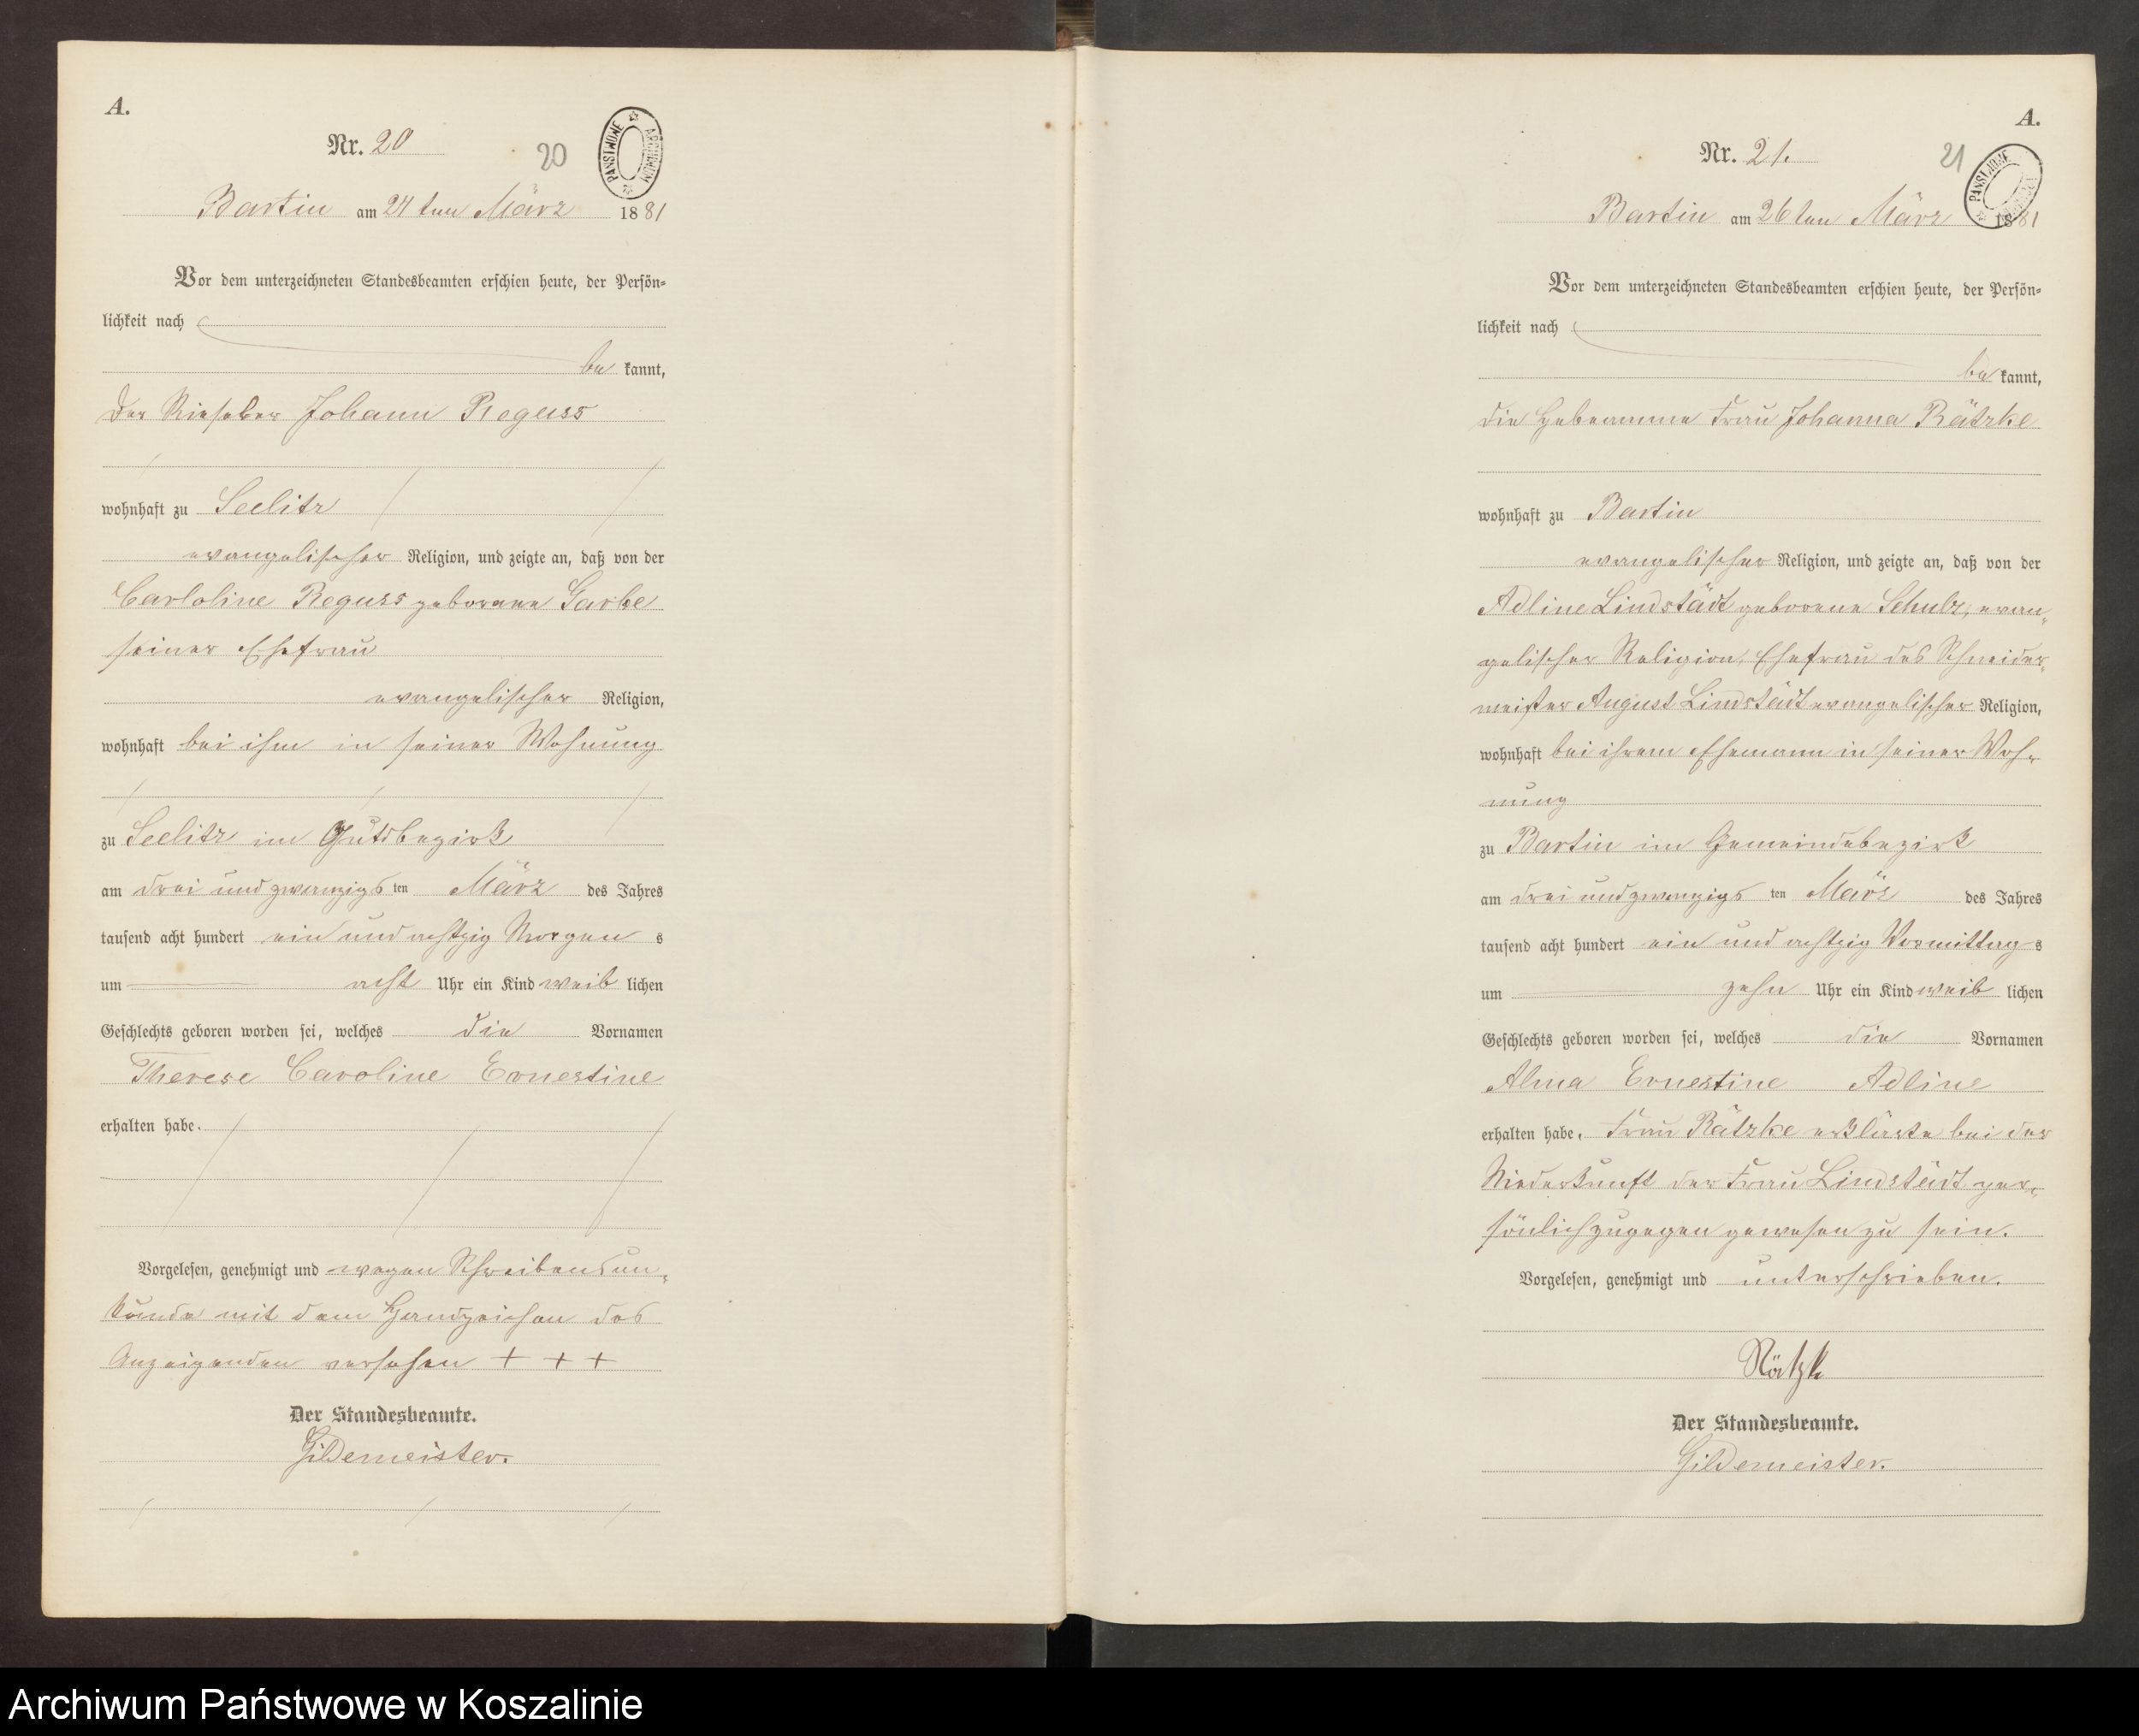 A.
Nr. 20
20
PAŃSTWOWE ARCHIWUM
Bartin am 24ten März 1881
Vor dem unterzeichneten Standesbeamten erschien heute, der Persön-
lichkeit nach
be kannt,
der Johann Reguss
wohnhaft zu Seelitz
evangelischer Religion, und zeigte an, daß von der
Carloline Reguss geborene Garbe
seiner Ehefrau
evangelischer Religion,
wohnhaft bei ihm in seiner Wohnung
zu Seelitz im Gutsbezirk
am drei und zwanzigs ten März des Jahres
tausend acht hundert ein und achtzig Morgen s
um acht Uhr ein Kind weib lichen
Geschlechts geboren worden sei, welches die Vornamen
Therese Caroline Ernestine
erhalten habe.
Vorgelesen, genehmigt und wegen Schreibensun-
kunde mit dem Handzeichen des
Anzeigenden versehen + + +
Der Standesbeamte.
Gildemeister.
A.
Nr. 21.
21
PAŃSTWOWE ARCHIWUM
Bartin am 26ten März 1881
Vor dem unterzeichneten Standesbeamten erschien heute, der Persön-
lichkeit nach
be kannt,
die Hebeamme Frau Johanna Rätzke
wohnhaft zu Bartin
evangelischer Religion, und zeigte an, daß von der
Adline Lindstädt geborene Schulz, evan-
gelischer Religion, Ehefrau des Schneider-
meister August Lindstädt evangelischer Religion,
wohnhaft bei ihrem Ehemann in seiner Woh-
nung
zu Bartin im Gemeindebezirk
am drei und zwanzigs ten März des Jahres
tausend acht hundert ein und achtzig Vormittag s
um zehn Uhr ein Kind weib lichen
Geschlechts geboren worden sei, welches die Vornamen
Alma Ernestine Adline
erhalten habe. Frau Rätzke erklärte bei der
Niederkunft der Frau Lindstädt per-
sönlich zugegen gewesen zu sein.
Vorgelesen, genehmigt und unterschrieben.
Rätzk
Der Standesbeamte.
Gildemeister.
Archiwum Państwowe w Koszalinie